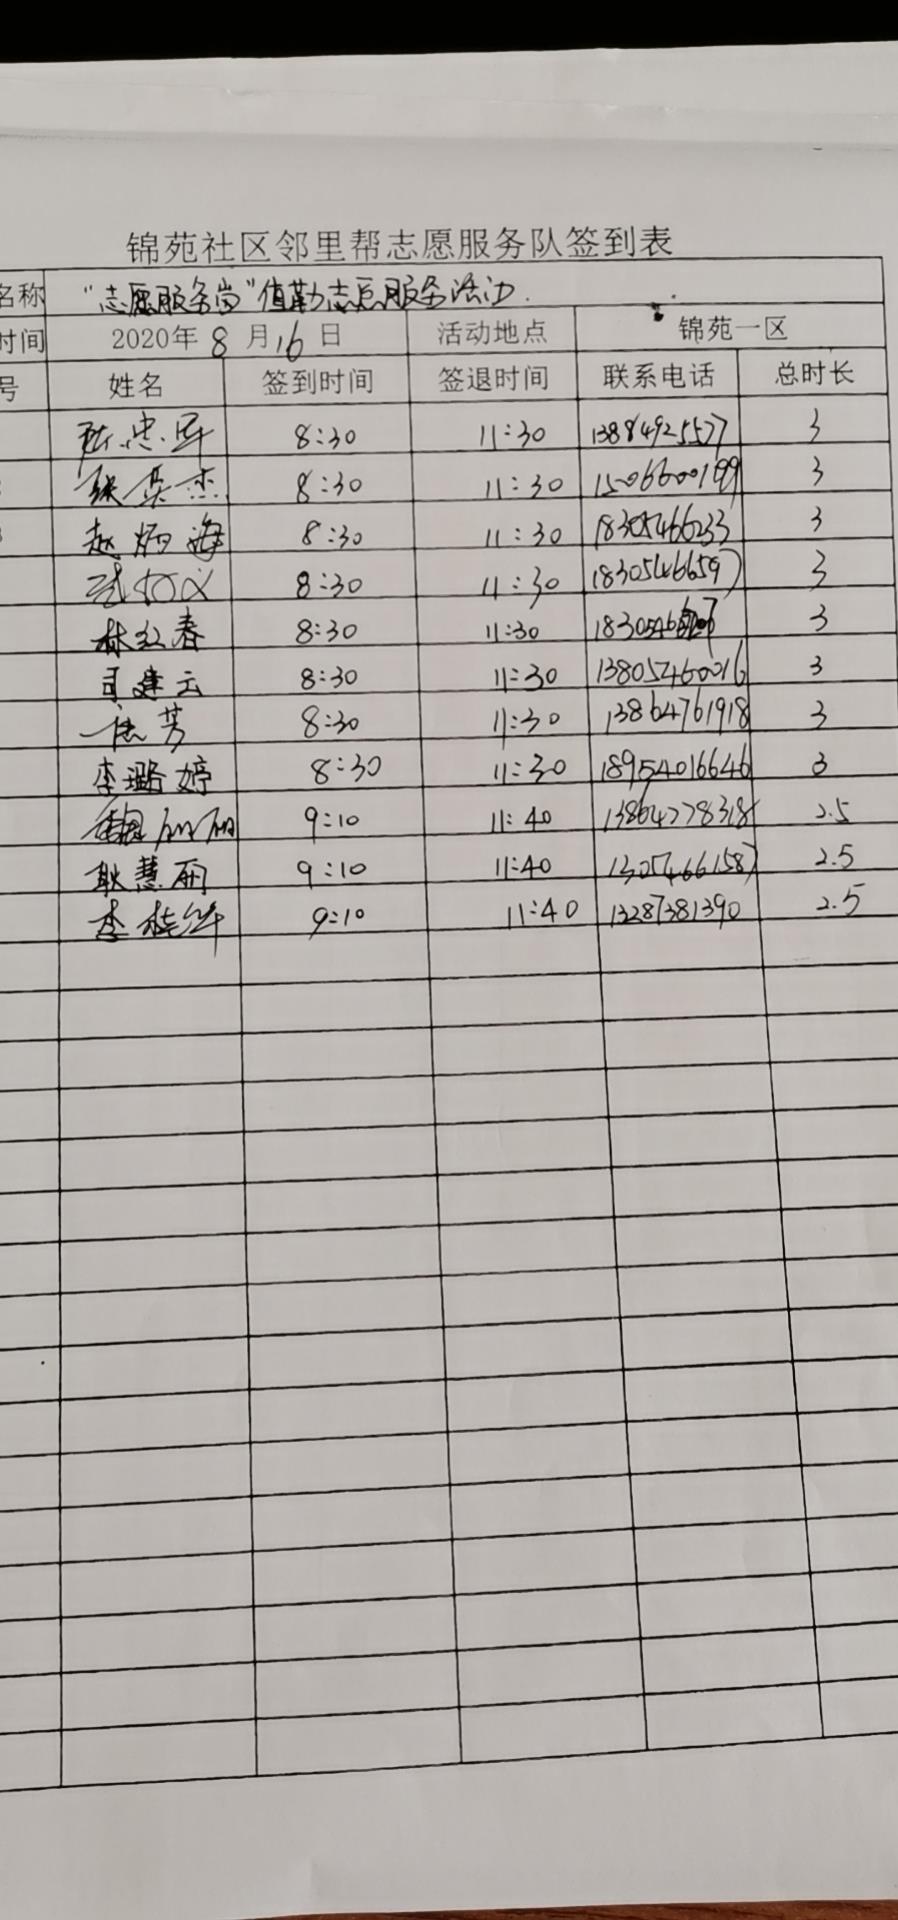 锦苑社区邻里帮志愿服务队签到表
名称 "志愿服务岗"值勤志愿服务活动.
时间 2020年8月16日 活动地点 锦苑一区
号 姓名 签到时间 签退时间 联系电话 总时长
忠军 8:30 11:30 13884925577 3
张英杰 8:30 11:30 15066000199 3
赵炳海 8:30 11:30 18305466233 3
8:30 11:30 18305466597 3
林红春 8:30 11:30 3
司建云 8:30 11:30 13805460016 3
芳 8:30 11:30 13864761918 3
李璐婷 8:30 11:30 18954016646 3
魏丽丽 9:10 11:40 13864778318 2.5
耿慧丽 9:10 11:40 13054661587 2.5
李桂华 9:10 11:40 13287381390 2.5